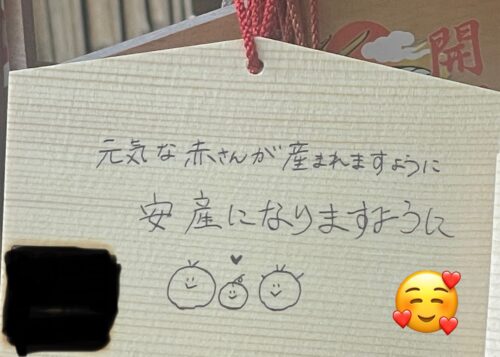 開
元気な赤さんが産まれますように
安産になりますように